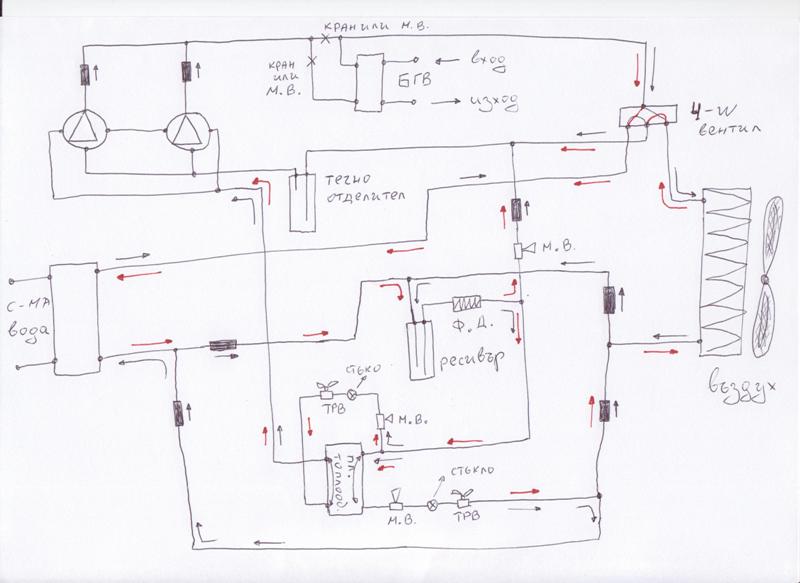 КРАН ИЛИ М.В.
КРАН
ИЛИ
М.В.
БГВ
ВХОД
ИЗХОД
4-W
ВЕНТИЛ
ТЕЧНО
ОТДЕЛИТЕЛ
М.В.
С-МА
ВОДА
Ф.Д.
РЕСИВЪР
ВЪЗДУХ
СТЬКО
ТРВ
М.В.
ПЛ.
ТОПЛООБ.
СТЬКЛО
М.В.
ТРВ